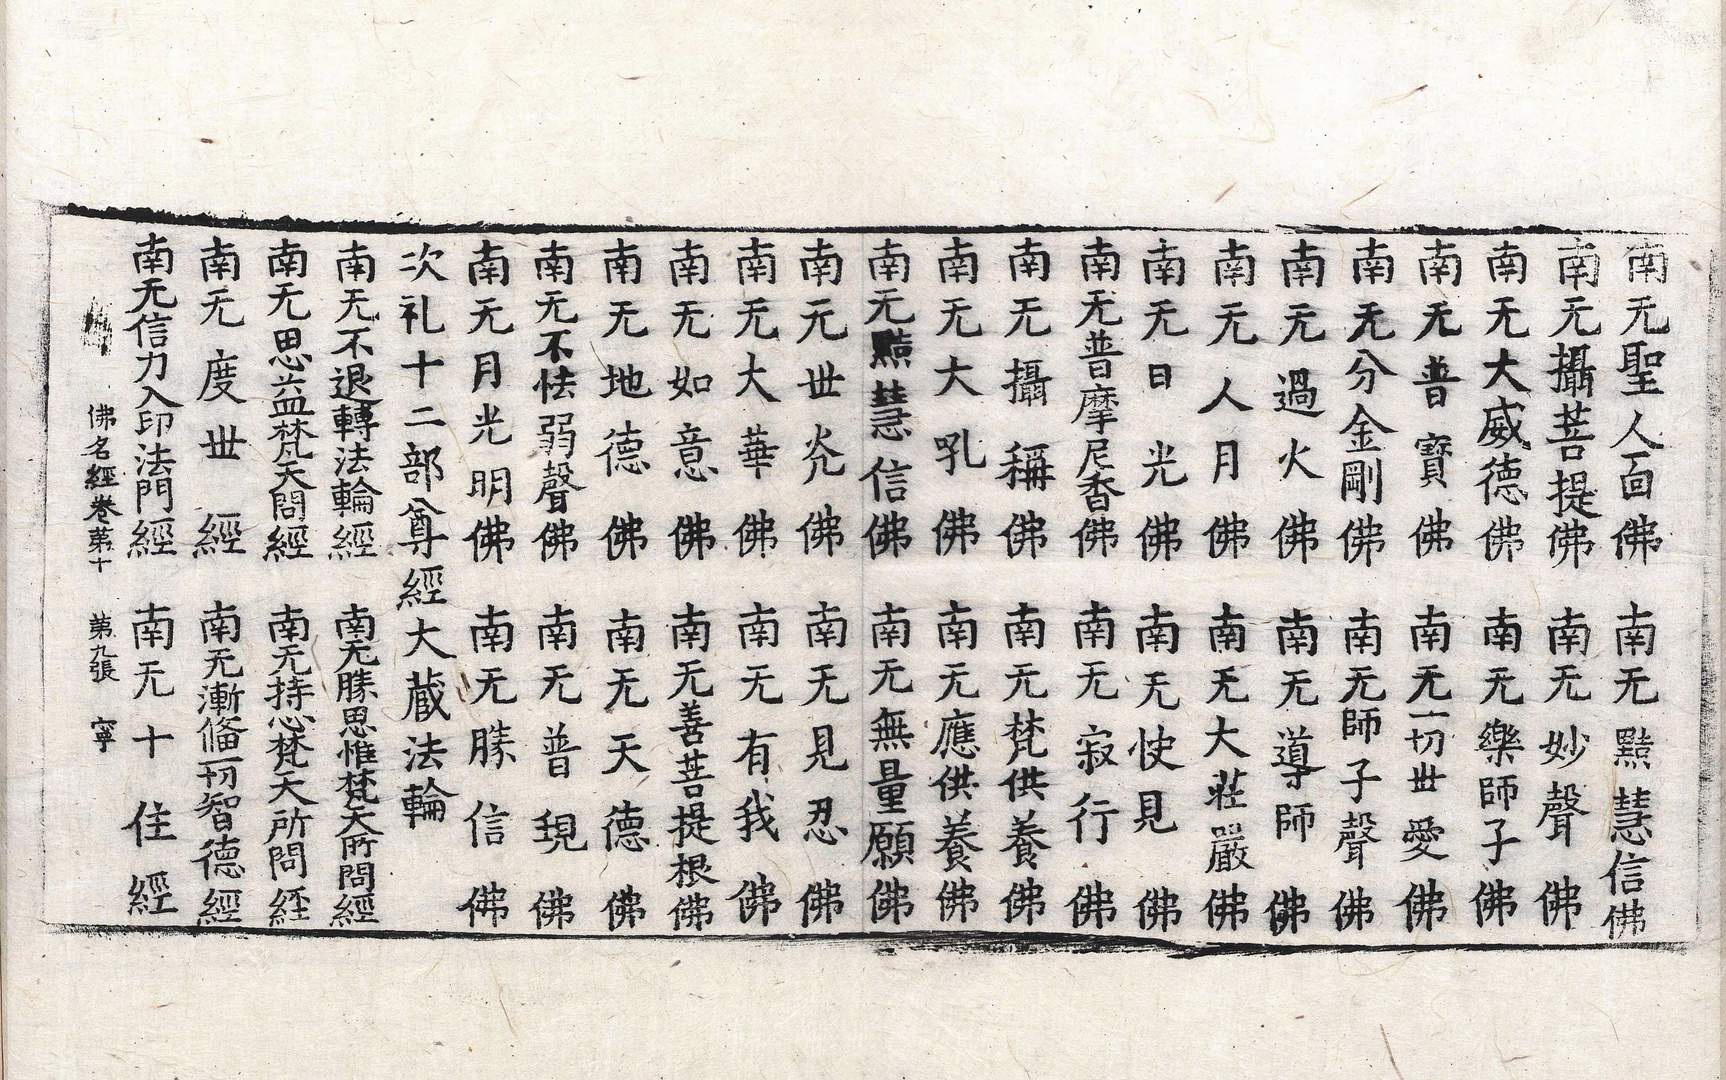 南无聖人面佛 南无黠慧信佛
南无攝菩提佛 南无妙聲佛
南无大威德佛 南无樂師子佛
南无普寶佛 南无一切世愛佛
南无分金剛佛 南无師子聲佛
南无過火佛 南无導師佛
南无人月佛 南无大莊嚴佛
南无日光佛 南无快見佛
南无普摩尼香佛 南无寂行佛
南无攝稱佛 南无梵供養佛
南无大吼佛 南无應供養佛
南无黠慧信佛 南无無量願佛
南无世光佛 南无見忍佛
南无大華佛 南无有我佛
南无如意佛 南无善菩提根佛
南无地德佛 南无天德佛
南无不怯弱聲佛 南无普現佛
南无月光明佛 南无勝信佛
次礼十二部尊經大藏法輪
南无不退轉法輪經 南无勝思惟梵天所問經
南无思益梵天問經 南无持心梵天所問經
南无度世經 南无漸俻一切智德經
南无信力入印法門經 南无十住經
佛名經卷第十 第九張 寧